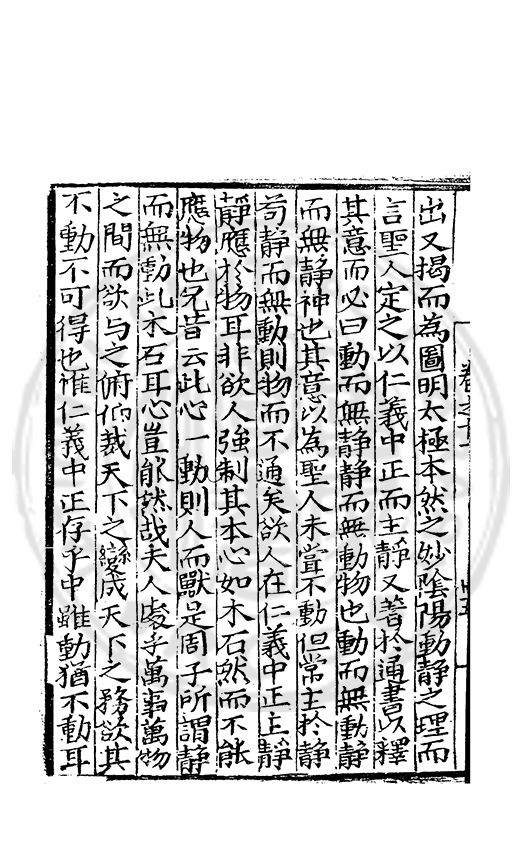 出又揭而為圖明太極本然之妙陰陽動靜之理而
言聖人定之以仁義中正而主靜又著於通書以釋
其意而必曰動而無静静而無動物也動而無動静
而無静神也其意以為聖人未嘗不動但常主於静
苟静而無動則物而不通矣欲人在仁義中正上静
靜應於物耳非欲人強制其本心如木石然而不能
應物也兄昔云此心一動則人而獸是周子所謂静
而無動此木石耳心豈能然哉夫人處乎萬事萬物
之間而欲与之俯仰裁天下之變成天下之務欲其
不動不可得也惟仁義中正存乎中雖動猶不動耳